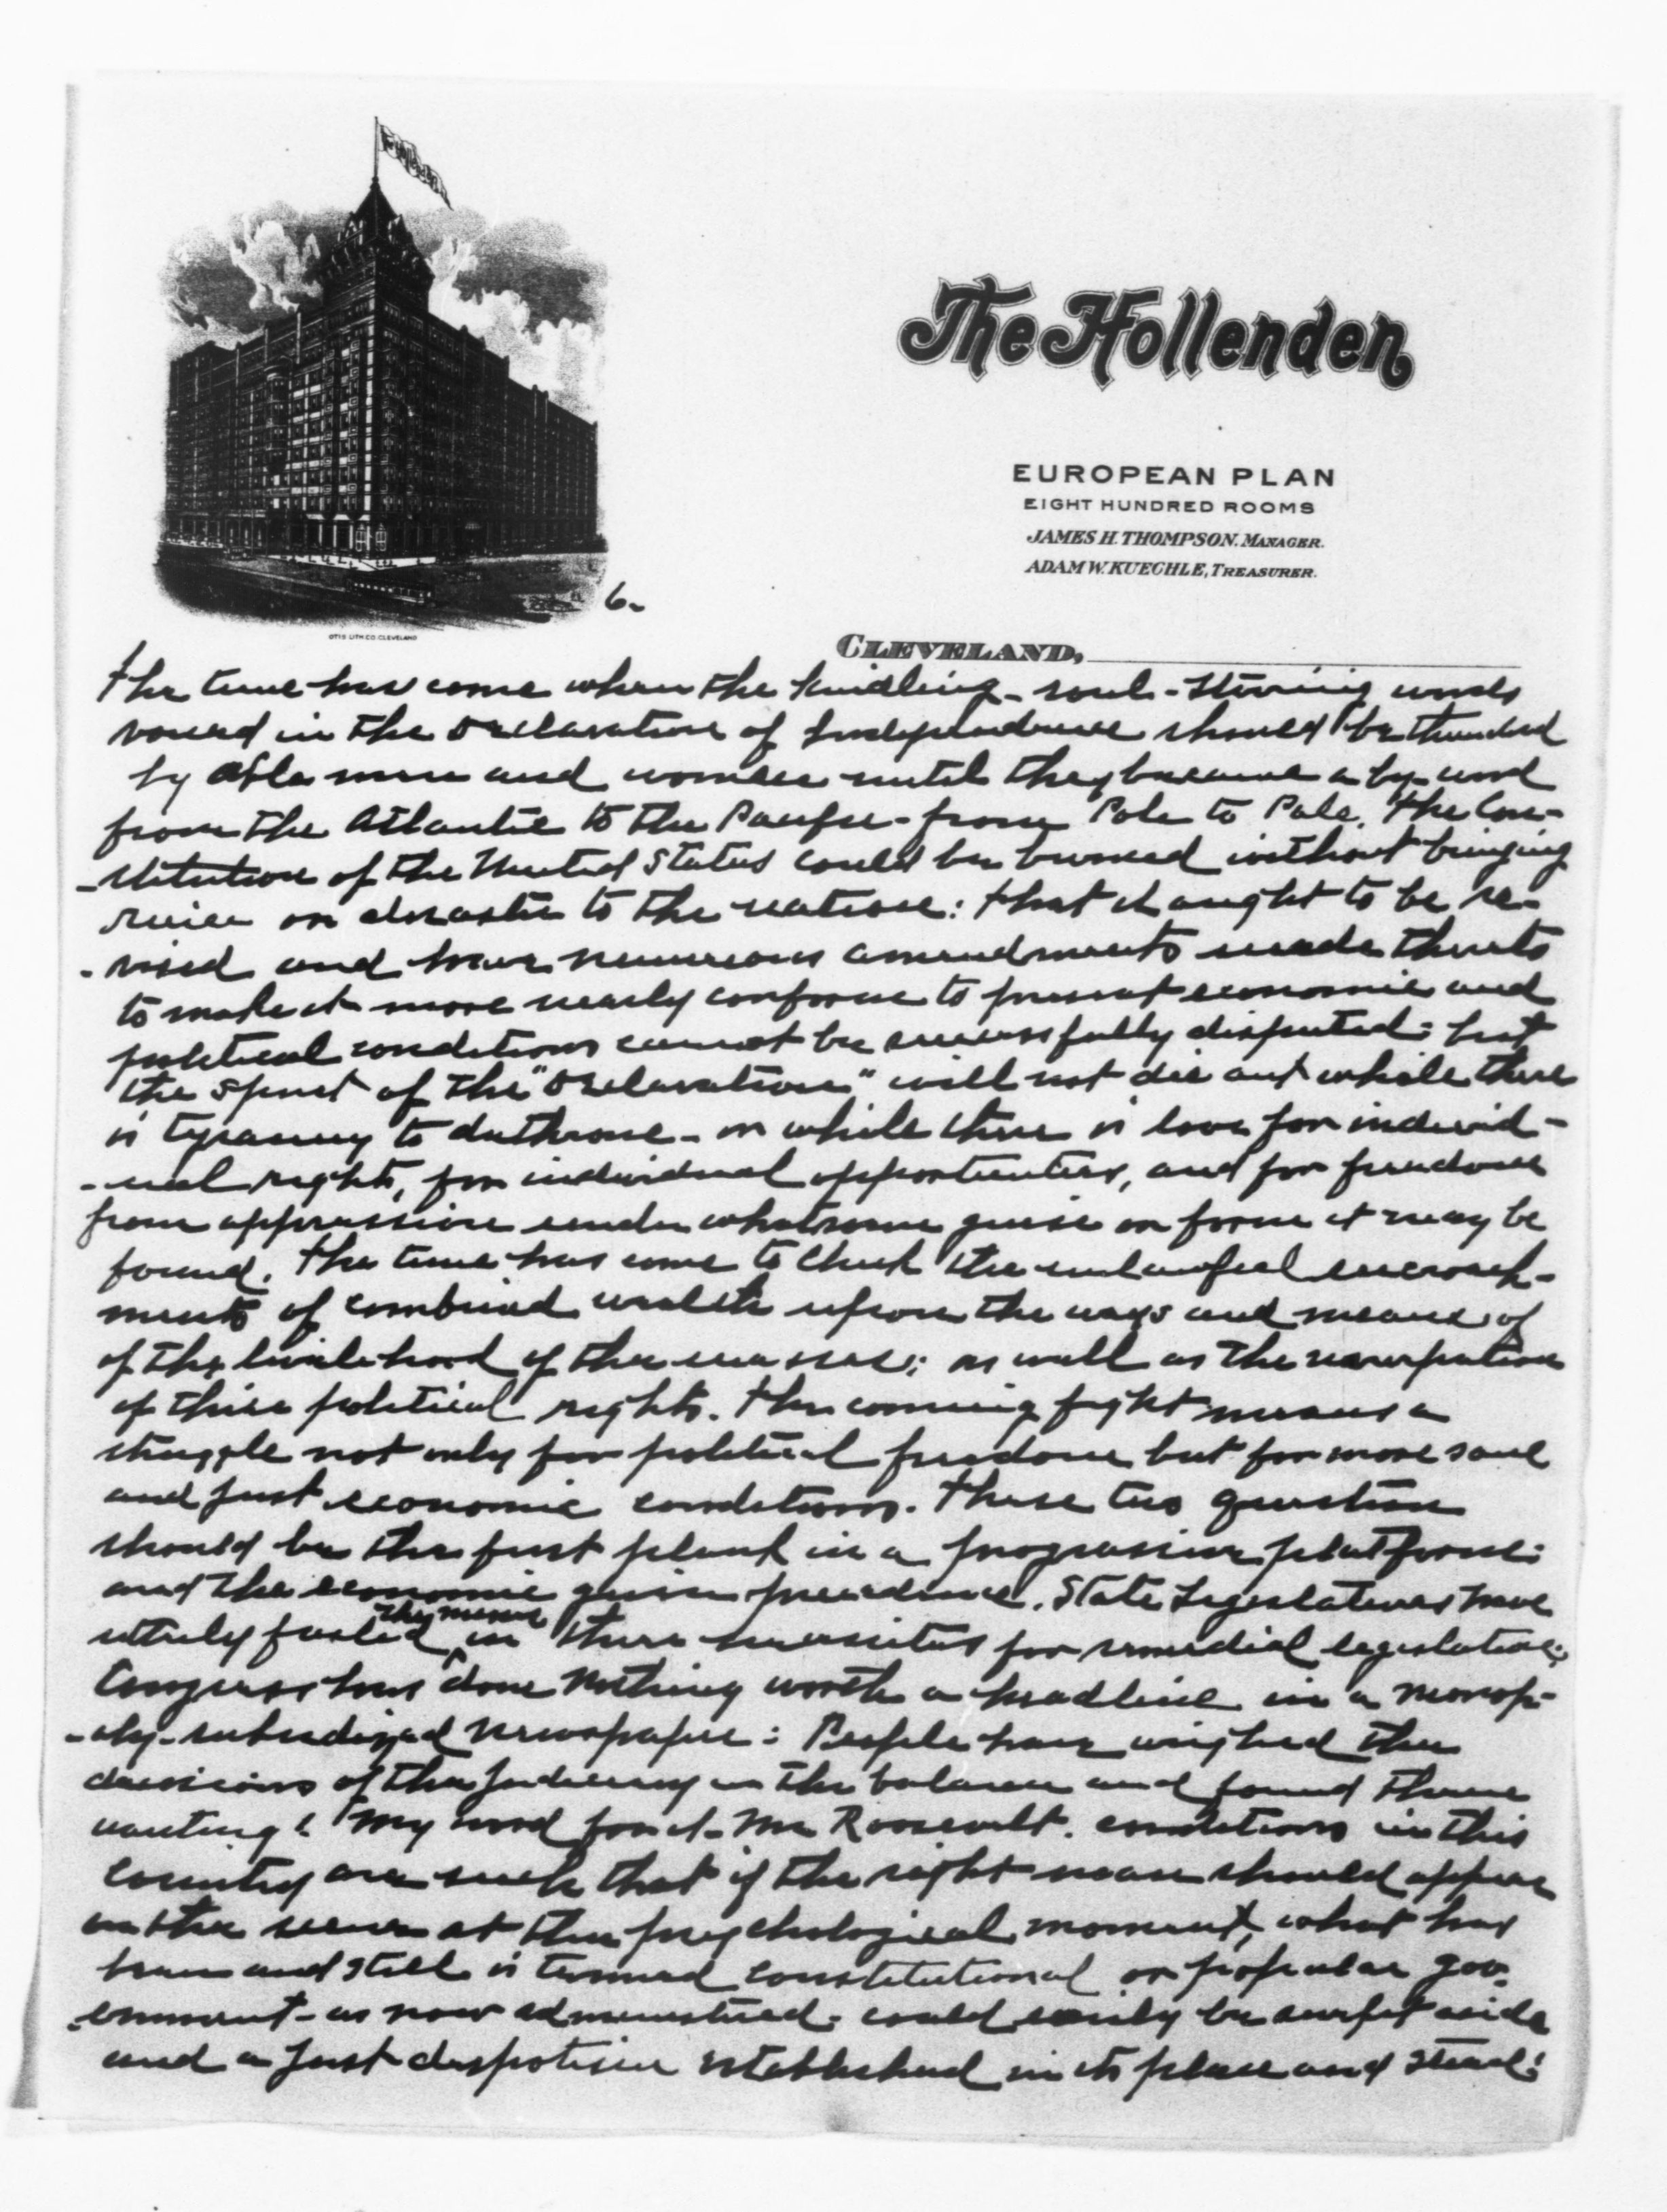 The Hollenden
EUROPEAN PLAN
EIGHT HUNDRED ROOMS
JAMES H. THOMPSON, MANAGER.
ADAM W. KUECHLE, TREASURER.
6.
OTIS LITH CO. CLEVELAND
CLEVELAND,
The time has come when the kindling - soul - stirring words
voiced in the Declaration of Independence should be thundered
by able men and women until they became a by-word
from the Atlantic to the Pacific - from Pole to Pole. The Con-
-stitution of the United States could be burned without bringing
ruin or disaster to the nation: that it ought to be re-
-vised and have numerous amendments made thereto
to make it more nearly conform to present economic and
political conditions cannot be successfully disputed: but
the spirit of the "Declaration" will not die out while there
is tyranny to dethrone - or while there is love for individ-
-ual rights, for individual opportunities, and for freedom
from oppression under whatsoever guise or form it may be
found. The time has come to check the unlawful encroach-
ments of combined wealth upon the ways and means of
of the livelihood of the masses; as well as the usurpation
of their political rights. The coming fight means a
struggle not only for political freedom but for more sane
and just economic conditions. These two question
should be the first plank in a progressive platform:
and the economic given precedence. State Legislatures have
utterly failed in their necessities for remedial legislation;
Congress has done nothing worth a headline in a monop-
-oly-subsidized newspaper: People have weighed the
decisions of the Judiciary in the balance and found them
wanting! My word for it - Mr Roosevelt. conditions in this
Country are such that if the right man should appear
on the scene at the psychological moment, what has
been and still is termed constitutional or popular gov-
-ernment - as now administered - could easily be swept aside
and a just despotism established in its place and stead: